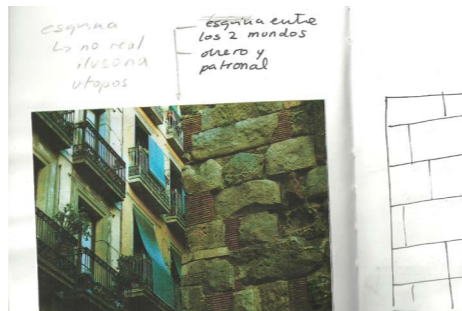 esquina
↳ no real
ilusoria
utopos
esquina entre
los 2 mundos
obrero y
patronal